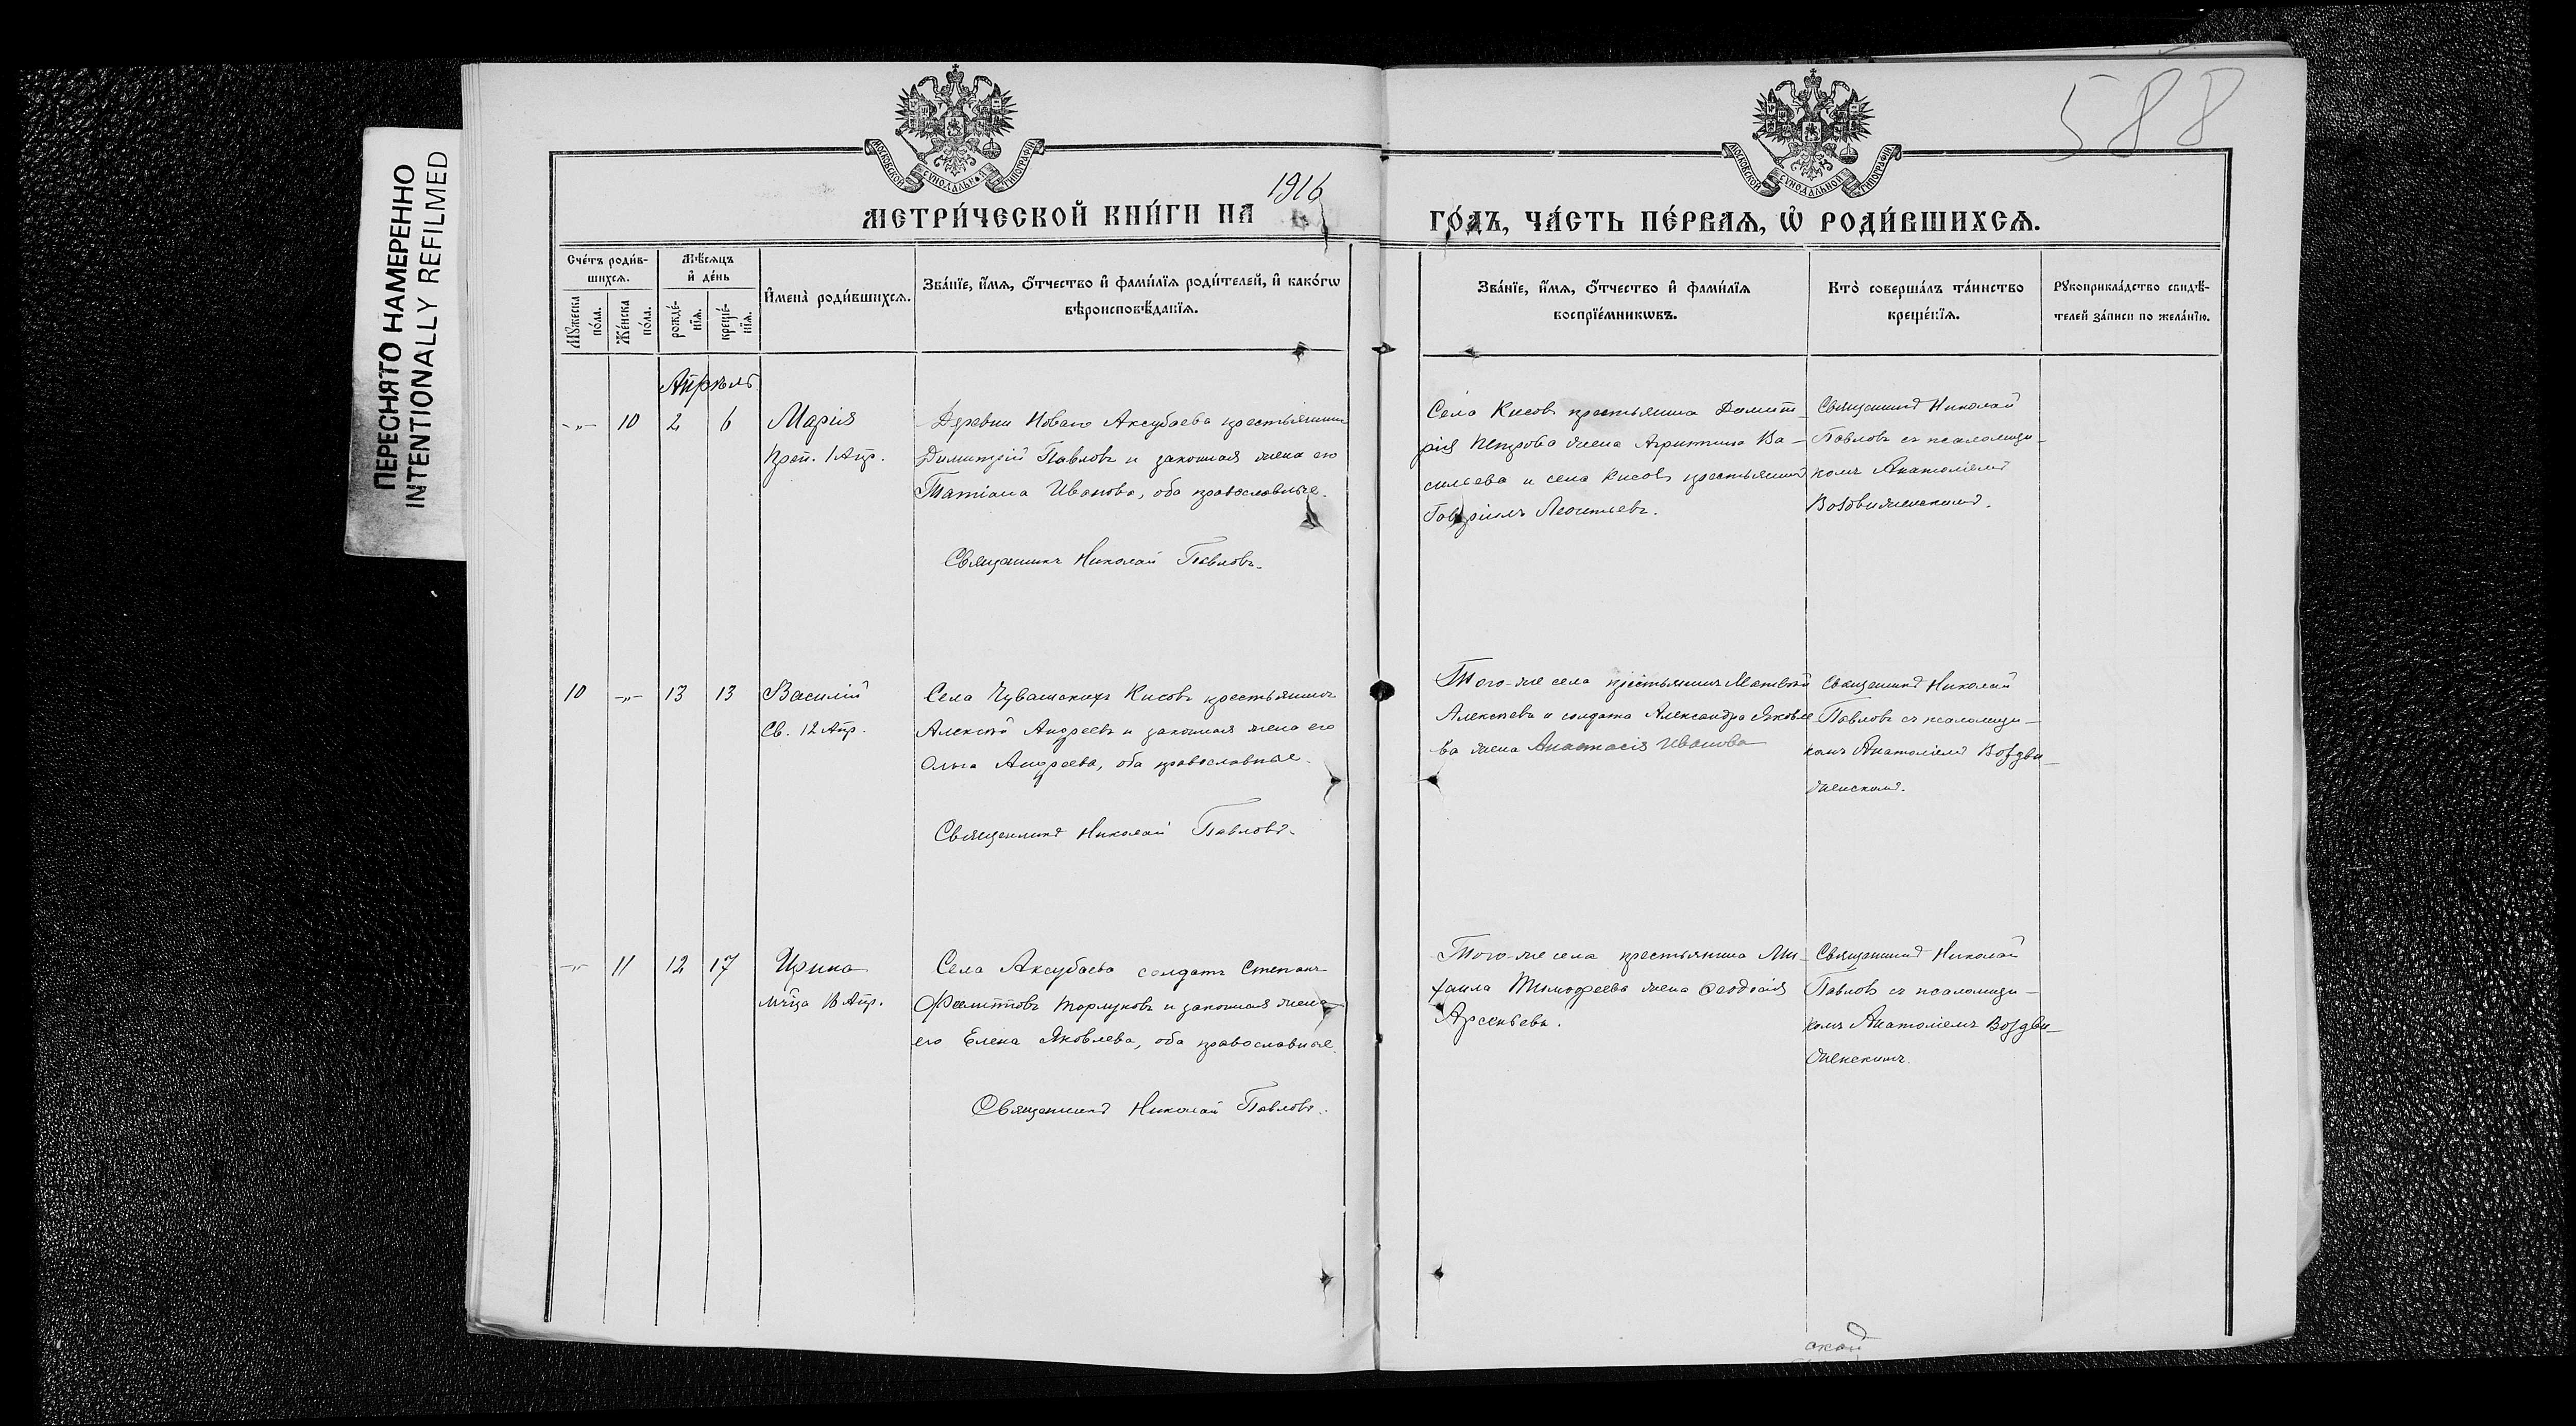 ПЕРЕСНЯТО НАМЕРЕННО
INTENTIONALLY REFILMED
588
МОСКОВСКОЙ СѴНОДАЛЬНОЙ ТИПОГРАФІИ
МОСКОВСКОЙ СѴНОДАЛЬНОЙ ТИПОГРАФІИ
1916
МЕТРИ́ЧЕСКОЙ КНИ́ГИ НА
ГО́ДЪ, ЧА́СТЬ ПЕ́РВАѦ, Ѽ РОДИ́ВШИХСѦ.
Сче́тъ роди́в-
шихсѧ.
Мꙋжеска по́ла.
Же́нска по́ла.
Мѣ́сѧцъ
и҆ де́нь
рожде́-
нїѧ.
креще́-
нїѧ.
И҆мена̀ роди́вшихсѧ.
Зва́нїе, и҆́мѧ, ѻ҆́тчество и҆ фами́лїѧ роди́телей, и҆ како́гѡ
вѣроисповѣ́данїѧ.
Зва́нїе, и҆́мѧ, ѻ҆́тчество и҆ фами́лїѧ
воспрїе́мникѡвъ.
Кто̀ соверша́лъ та́инство
креще́нїѧ.
Рꙋкоприкла́дство свидѣ́-
телей за́писи по жела́нїю.
Апрѣль
-„- 10 2 6
Марія
Преп. 1 Апр.
Деревни Новаго Аксубаева крестьянинъ
Димитрій Павловъ и законная жена его
Татіана Иванова, оба православные.
Священникъ Николай Павловъ.
Села Кисовъ крестьянина Димит-
рія Петрова жена Агриппина Ва-
сильева и села Кисовъ крестьянинъ
Гавріилъ Леонтьевъ.
Священникъ Николай
Павловъ съ псаломщи-
комъ Анатоліемъ
Воздвиженскимъ.
10 -„- 13 13
Василій
Св. 12 Апр.
Села Чувашскихъ Кисовъ крестьянинъ
Алексѣй Андреевъ и законная жена его
Ольга Андреева, оба православные.
Священникъ Николай Павловъ.
Того-же села крестьянинъ Матвѣй
Алексѣевъ и солдата Александра Яковле
ва жена Анастасія Иванова
Священникъ Николай
Павловъ съ псаломщи-
комъ Анатоліемъ Воздви-
женскимъ.
-„- 11 12 17
Ирина
мч҃ца 16 Апр.
Села Аксубаева солдатъ Степанъ
Филипповъ и законная жена
его Елена Яковлева, оба православные.
Священникъ Николай Павловъ.
Того-же села крестьянина Ми-
хаила Тимофеева жена Ѳеодосія
Арсеньева.
Священникъ Николай
Павловъ съ псаломщи-
комъ Анатоліемъ Воздви-
женскимъ.